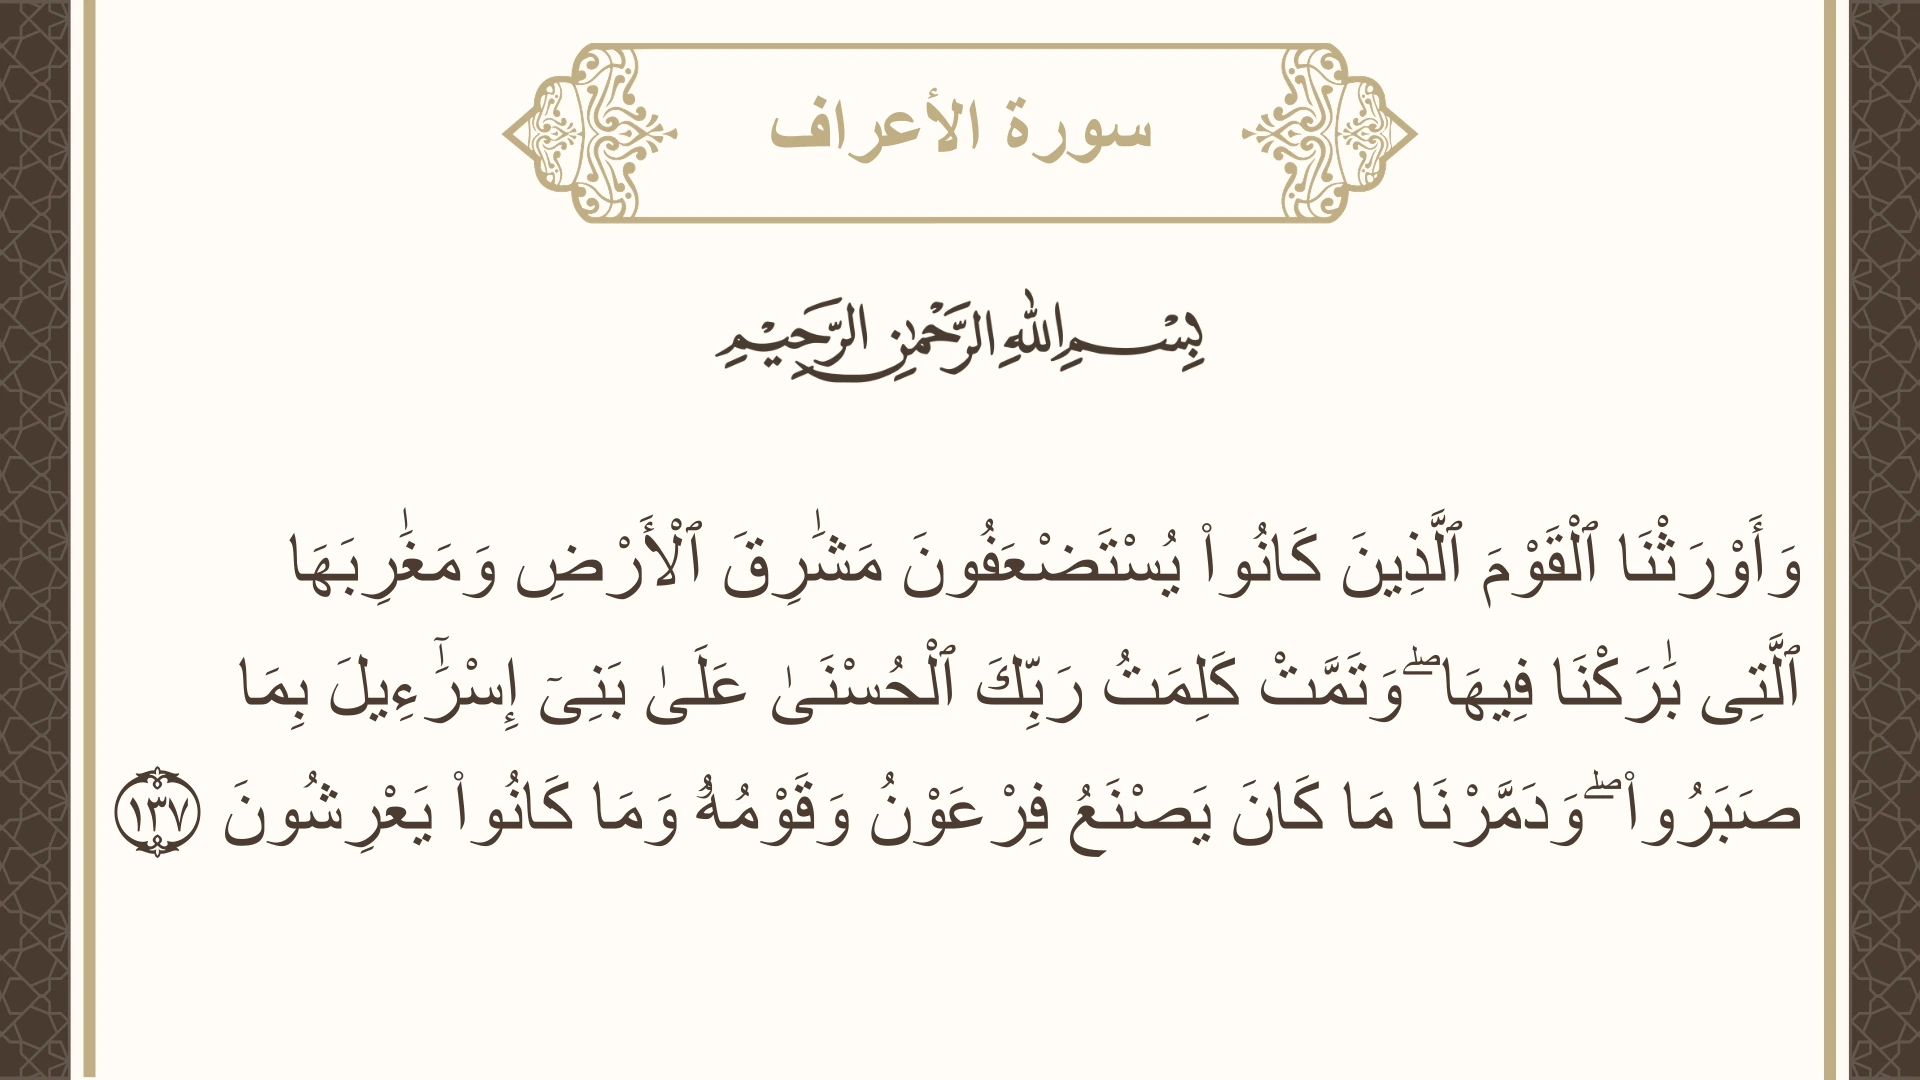 سورة الأعراف
بِسْمِ اللهِ الرَّحْمٰنِ الرَّحِيْمِ
وَأَوْرَثْنَا ٱلْقَوْمَ ٱلَّذِينَ كَانُوا۟ يُسْتَضْعَفُونَ مَشَٰرِقَ ٱلْأَرْضِ وَمَغَٰرِبَهَا
ٱلَّتِى بَٰرَكْنَا فِيهَا ۖ وَتَمَّتْ كَلِمَتُ رَبِّكَ ٱلْحُسْنَىٰ عَلَىٰ بَنِىٓ إِسْرَٰٓءِيلَ بِمَا
صَبَرُوا۟ ۖ وَدَمَّرْنَا مَا كَانَ يَصْنَعُ فِرْعَوْنُ وَقَوْمُهُۥ وَمَا كَانُوا۟ يَعْرِشُونَ ١٣٧